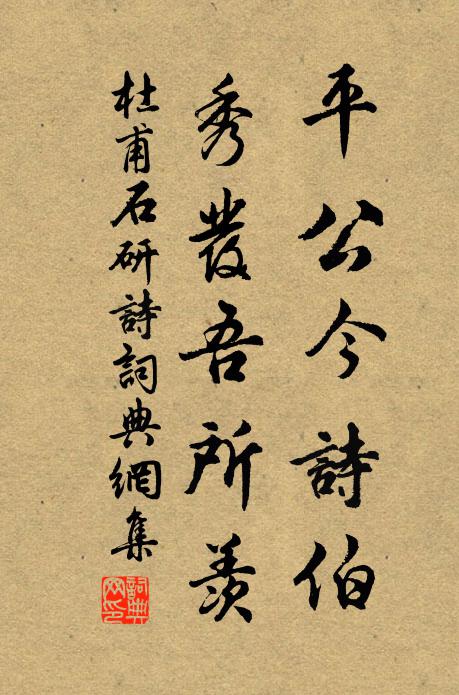 平公今詩伯
秀發吾所羨
杜甫石研詩詞典網集
詞典網印